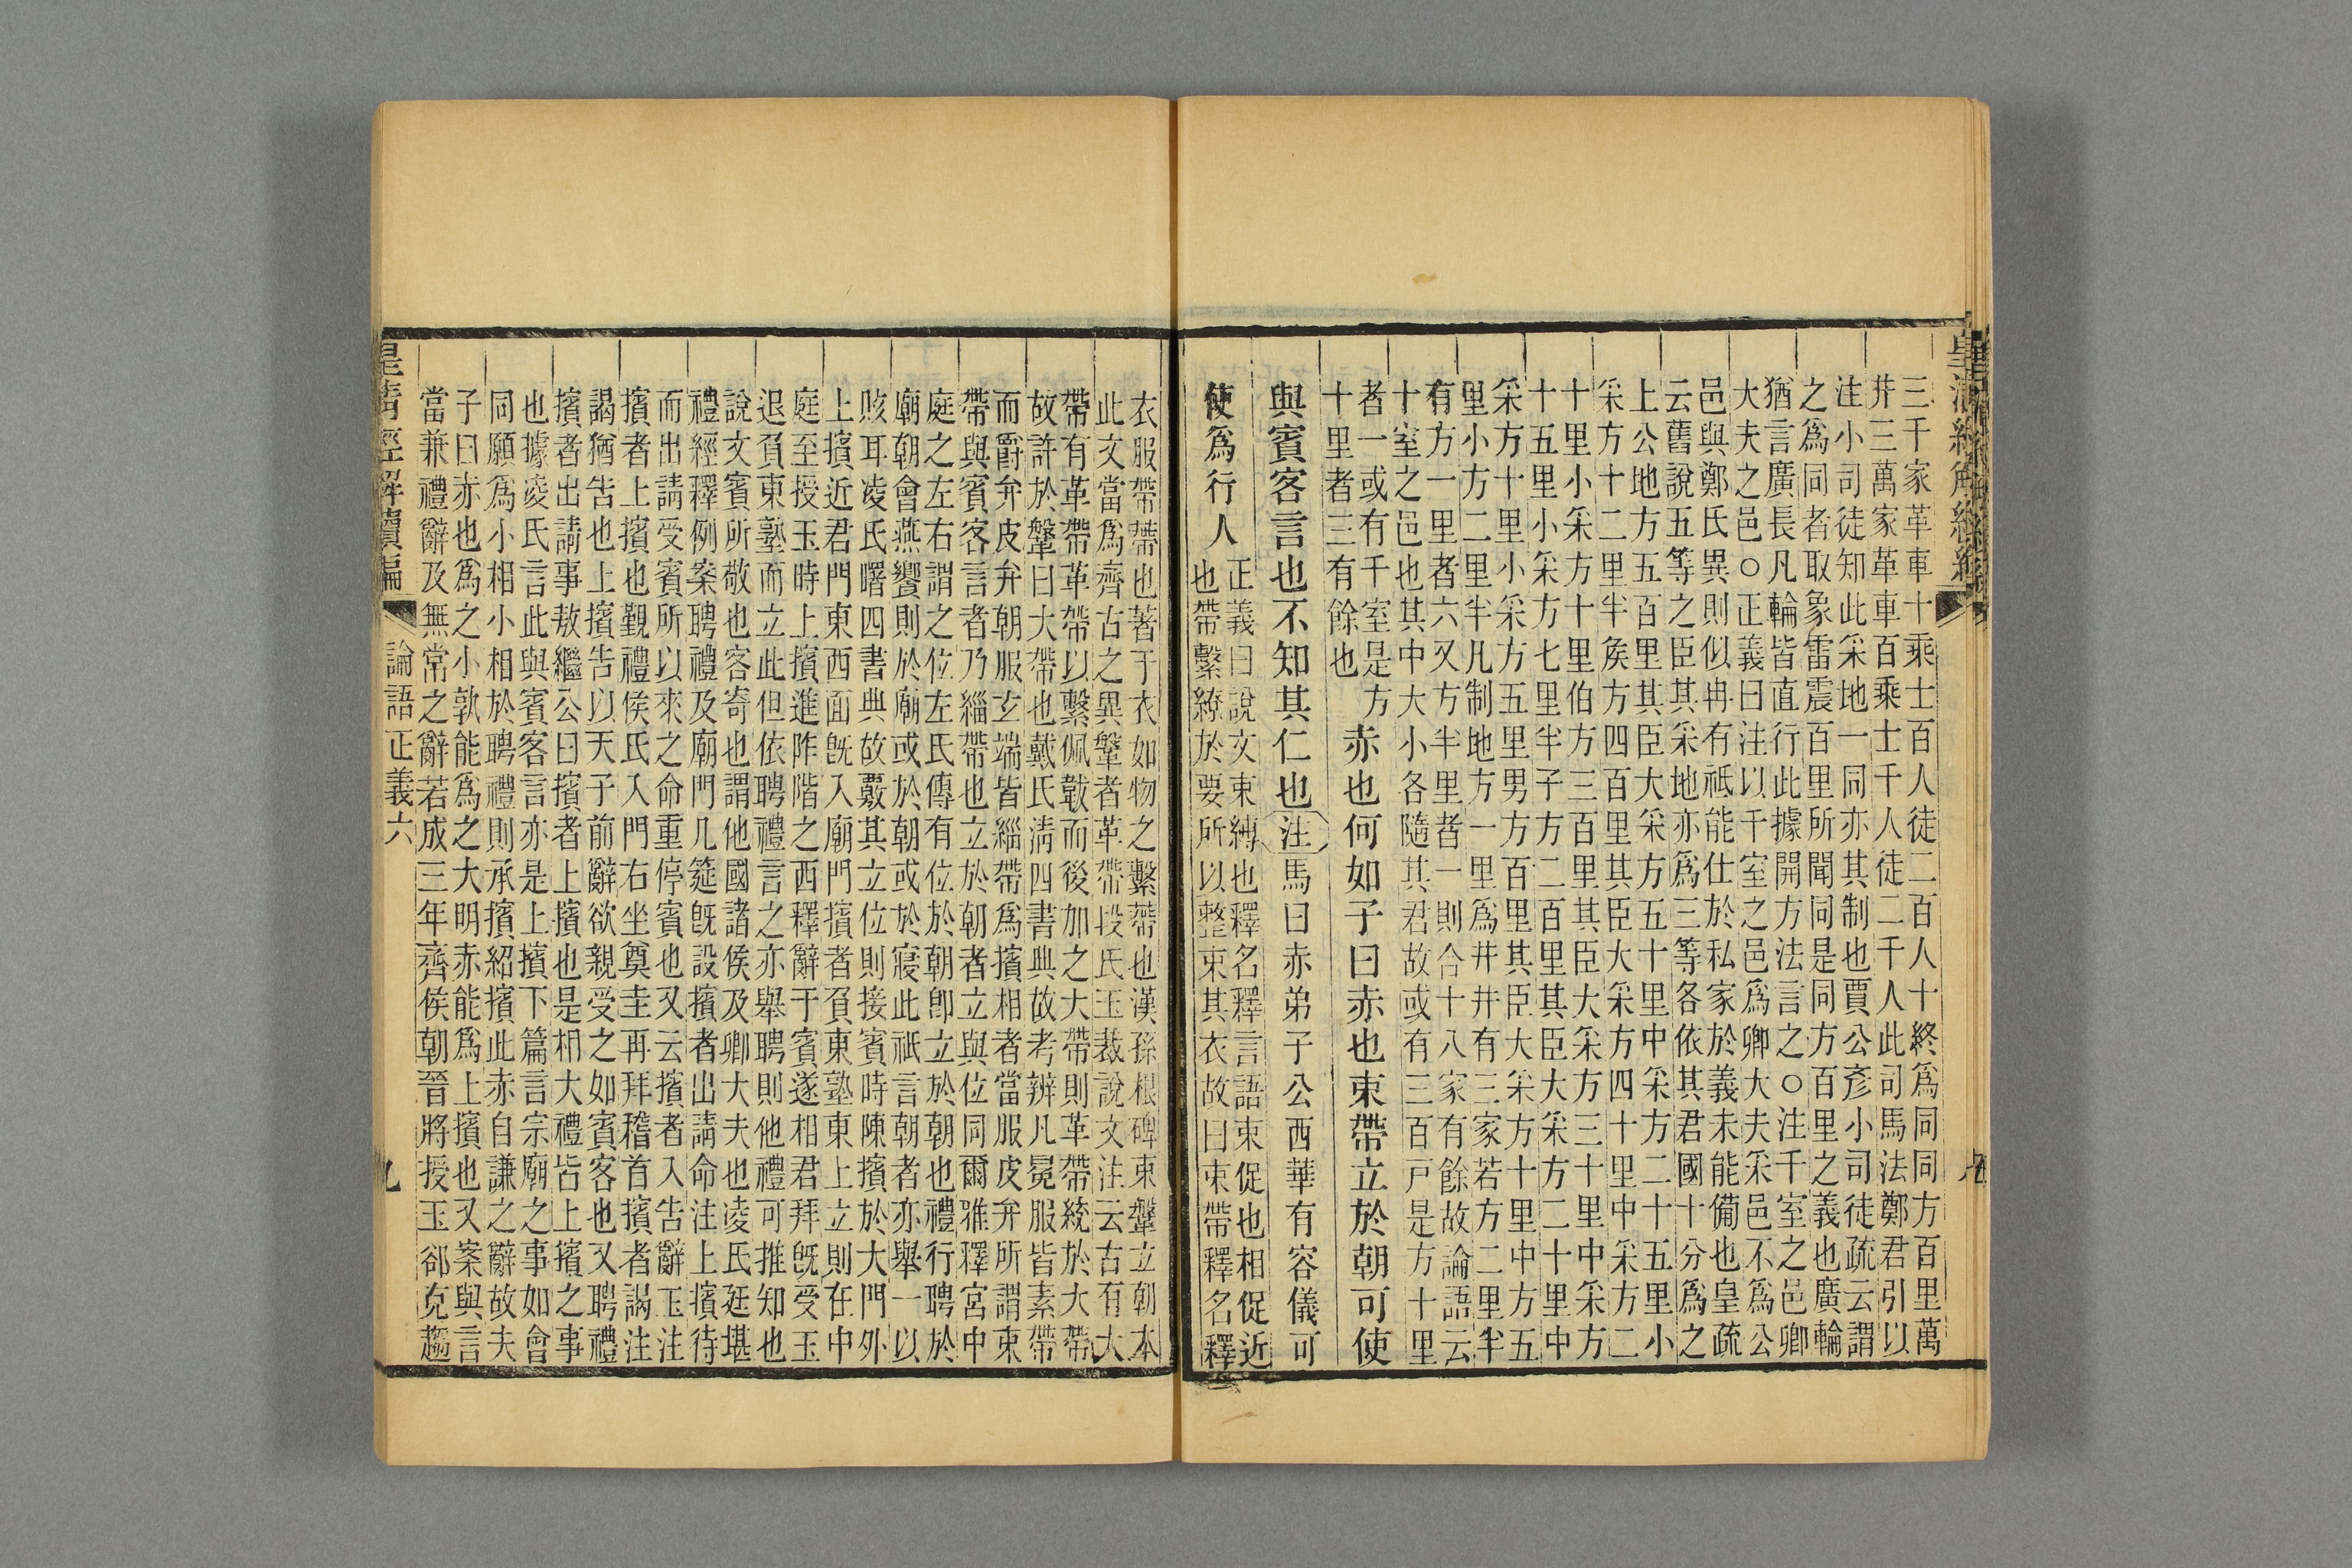 三千家革車十乘士百人徒二百人十終爲同同方百里萬
井三萬家革車百乘士千人徒二千人此司馬法鄭君引以
注小司徒知此采地一同亦其制也賈公彥小司徒疏云謂
之爲同者取象雷震百里所聞同是同方百里之義也廣輪
猶言廣長凡輪皆直行此據開方法言之○注千室之邑卿
大夫之邑○正義曰注以千室之邑爲卿大夫采邑不爲公
邑與鄭氏異則似冉有祗能仕於私家於義未能備也皇疏
云舊說五等之臣其采地亦爲三等各依其君國十分爲之
上公地方五百里其臣大采方五十里中采方二十五里小
采方十二里半矦方四百里其臣大采方四十里中采方二
十里小采方十里伯方三百里其臣大采方三十里中采方
十五里小采方七里半子方二百里其臣大采方二十里中
采方十里小采方五里男方百里其臣大采方十里中方五
里小方二里半凡制地方一里爲井井有三家若方二里半
有方一里者六又方半里者一則合十八家有餘故論語云
十室之邑也其中大小各隨其君故或有三百戸是方十里
者一或有千室是方
十里者三有餘也
赤也何如子曰赤也束帶立於朝可使
與賓客言也不知其仁也注馬曰赤弟子公西華有容儀可
使爲行人
正義曰說文束縛也釋名釋言語束促也相促近
也帶繫繚於要所以整束其衣故曰束帶釋名釋
衣服帶蔕也著于衣如物之繫蔕也漢孫根碑束鞶立朝本
此文當爲齊古之異鞶者革帶段氏玉裁說文注云古有大
帶有革帶革帶以繫佩韍而後加之大帶則革帶統於大帶
故許於鞶曰大帶也戴氏淸四書典故考辨凡冕服皆素帶
而爵弁皮弁朝服玄端皆緇帶爲擯相者當服皮弁所謂束
帶與賓客言者乃緇帶也立於朝者立與位同爾雅釋宮中
庭之左右謂之位左氏傳有位於朝卽立於朝也禮行聘於
廟朝會燕饗則於廟或於朝或於寢此祇言朝者亦舉一以
賅耳凌氏曙四書典故覈其立位則接賓時陳擯於大門外
上擯近君門東西面旣入廟門擯者負東塾東上立則在中
庭至授玉時上擯進阼階之西釋辭于賓遂相君拜旣受玉
退負東塾而立此但依聘禮言之亦舉聘則他禮可推知也
說文賓所敬也客寄也謂他國諸侯及卿大夫也凌氏廷堪
禮經釋例案聘禮及廟門几筵旣設擯者出請命注上擯待
而出請受賓所以來之命重停賓也又云擯者入告辭玉注
擯者上擯也覲禮侯氏入門右坐奠圭再拜稽首擯者謁注
謁猶告也上擯告以天子前辭欲親受之如賓客也又聘禮
擯者出請事敖繼公曰擯者上擯也是相大禮皆上擯之事
也據凌氏言此與賓客言亦是上擯下篇言宗廟之事如會
同願爲小相小相於聘禮則承擯紹擯此赤自謙之辭故夫
子曰赤也爲之小孰能爲之大明赤能爲上擯也又案與言
當兼禮辭及無常之辭若成三年齊侯朝晉將授玉郤克趨
皇淸經解續編
論語正義六
九